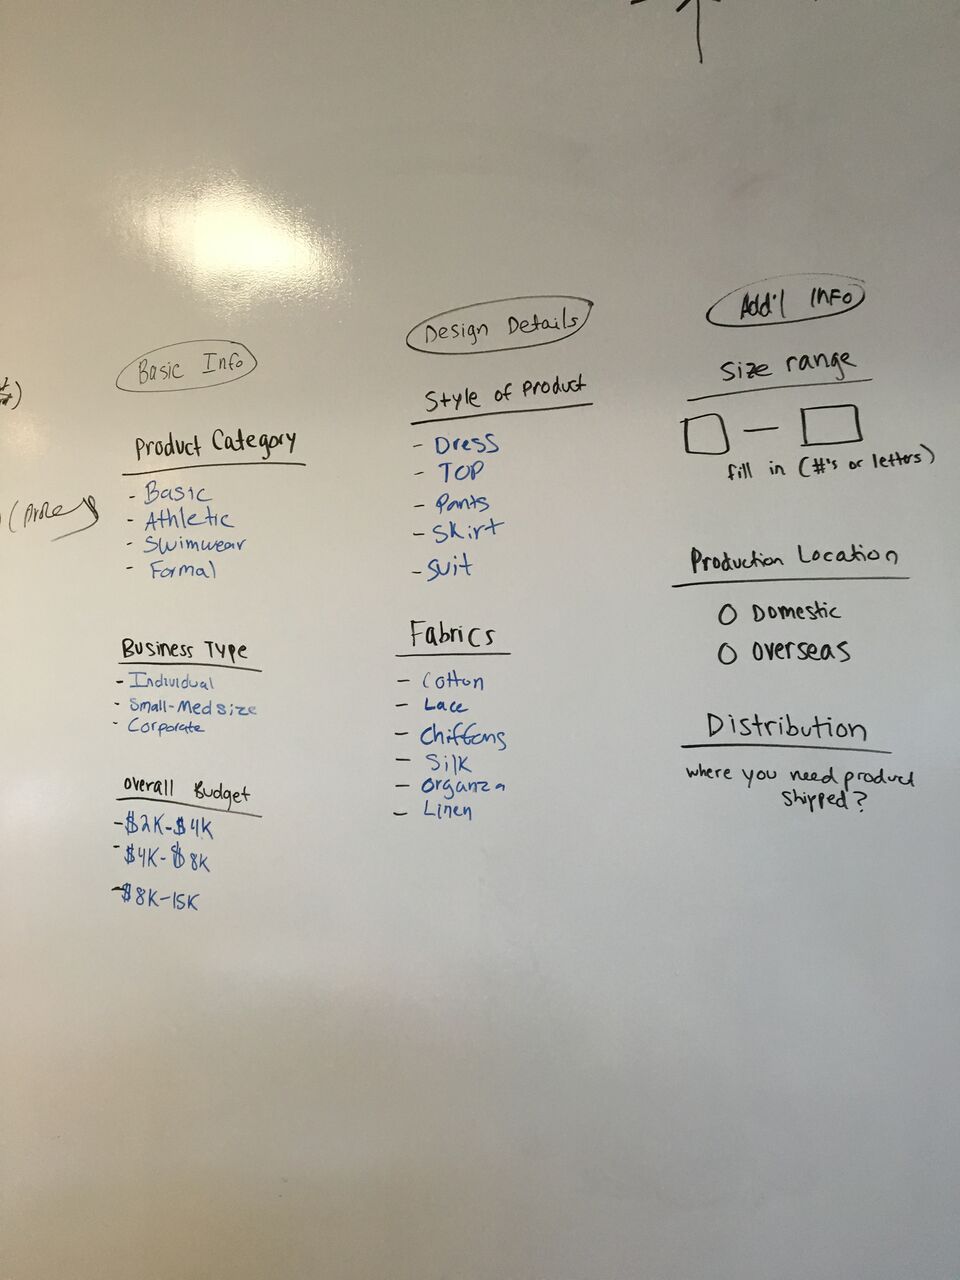 Basic Info
Product Category
- Basic
- Athletic
- Swimwear
- Formal
Business Type
- Individual
- Small-Medsize
- Corporate
Overall Budget
- $2K-$4K
- $4K-$8K
- $8K-15K
Design Details
Style of Product
- Dress
- TOP
- Pants
- Skirt
- Suit
Fabrics
- Cotton
- Lace
- Chiffons
- Silk
- Organza
- Linen
Add'l Info
Size range
fill in (#'s or letters)
Production Location
O Domestic
O Overseas
Distribution
where you need product
shipped?